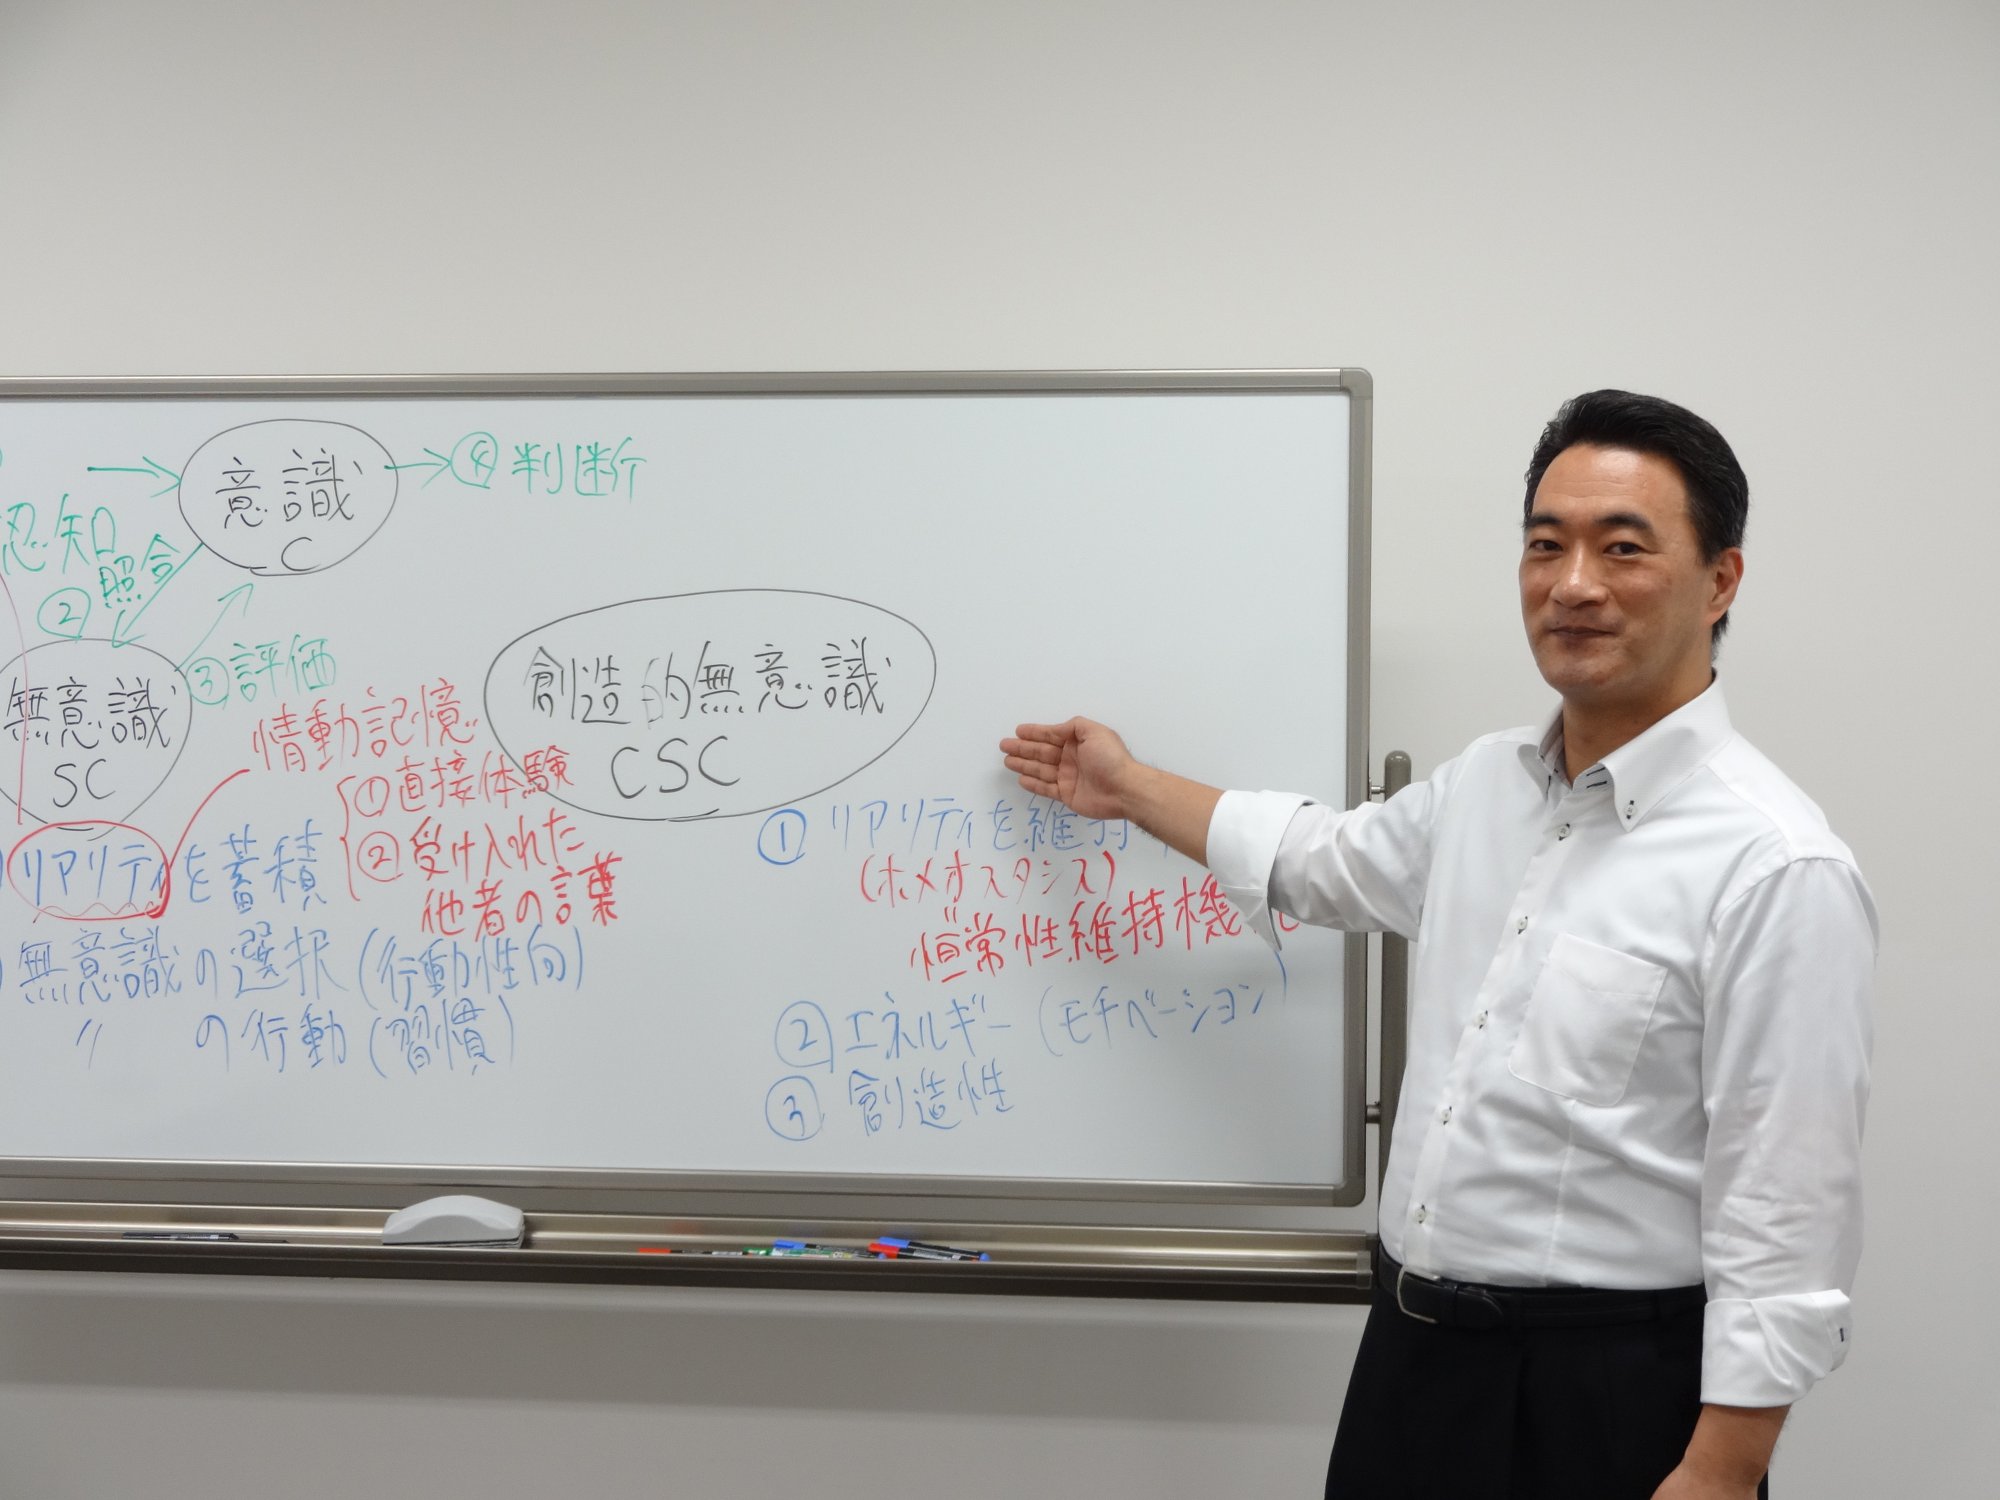 意識
C
④ 判断
認知
② 照合
③ 評価
無意識
SC
創造的無意識
CSC
情動記憶
① 直接体験
② 受け入れた
他者の言葉
リアリティを蓄積
無意識の選択 (行動性向)
〃 の行動 (習慣)
① リアリティを維持
(ホメオスタシス)
恒常性維持機
② エネルギー (モチベーション)
③ 創造性